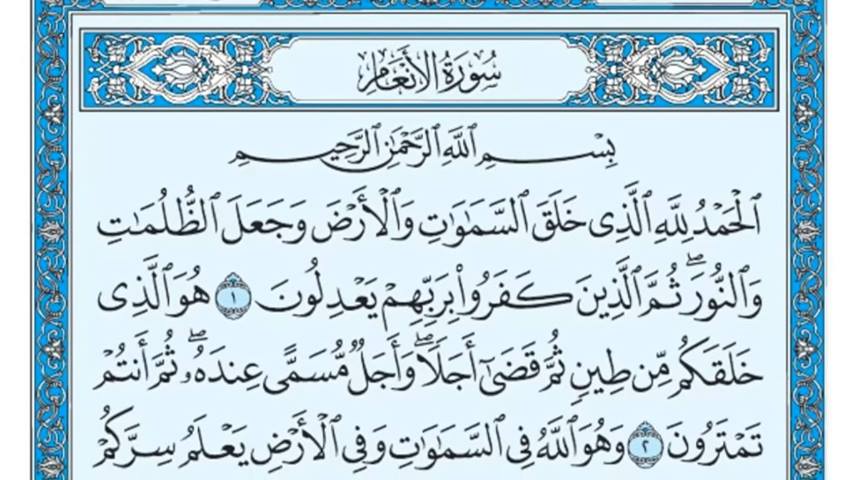 سُورَةُ الأَنْعَامِ
بِسْمِ ٱللَّهِ ٱلرَّحْمَٰنِ ٱلرَّحِيمِ
ٱلْحَمْدُ لِلَّهِ ٱلَّذِى خَلَقَ ٱلسَّمَٰوَٰتِ وَٱلْأَرْضَ وَجَعَلَ ٱلظُّلُمَٰتِ
وَٱلنُّورَ ۖ ثُمَّ ٱلَّذِينَ كَفَرُوا۟ بِرَبِّهِمْ يَعْدِلُونَ ١ هُوَ ٱلَّذِى
خَلَقَكُم مِّن طِينٍ ثُمَّ قَضَىٰٓ أَجَلًا ۖ وَأَجَلٌ مُّسَمًّى عِندَهُۥ ۖ ثُمَّ أَنتُمْ
تَمْتَرُونَ ٢ وَهُوَ ٱللَّهُ فِى ٱلسَّمَٰوَٰتِ وَفِى ٱلْأَرْضِ يَعْلَمُ سِرَّكُمْ